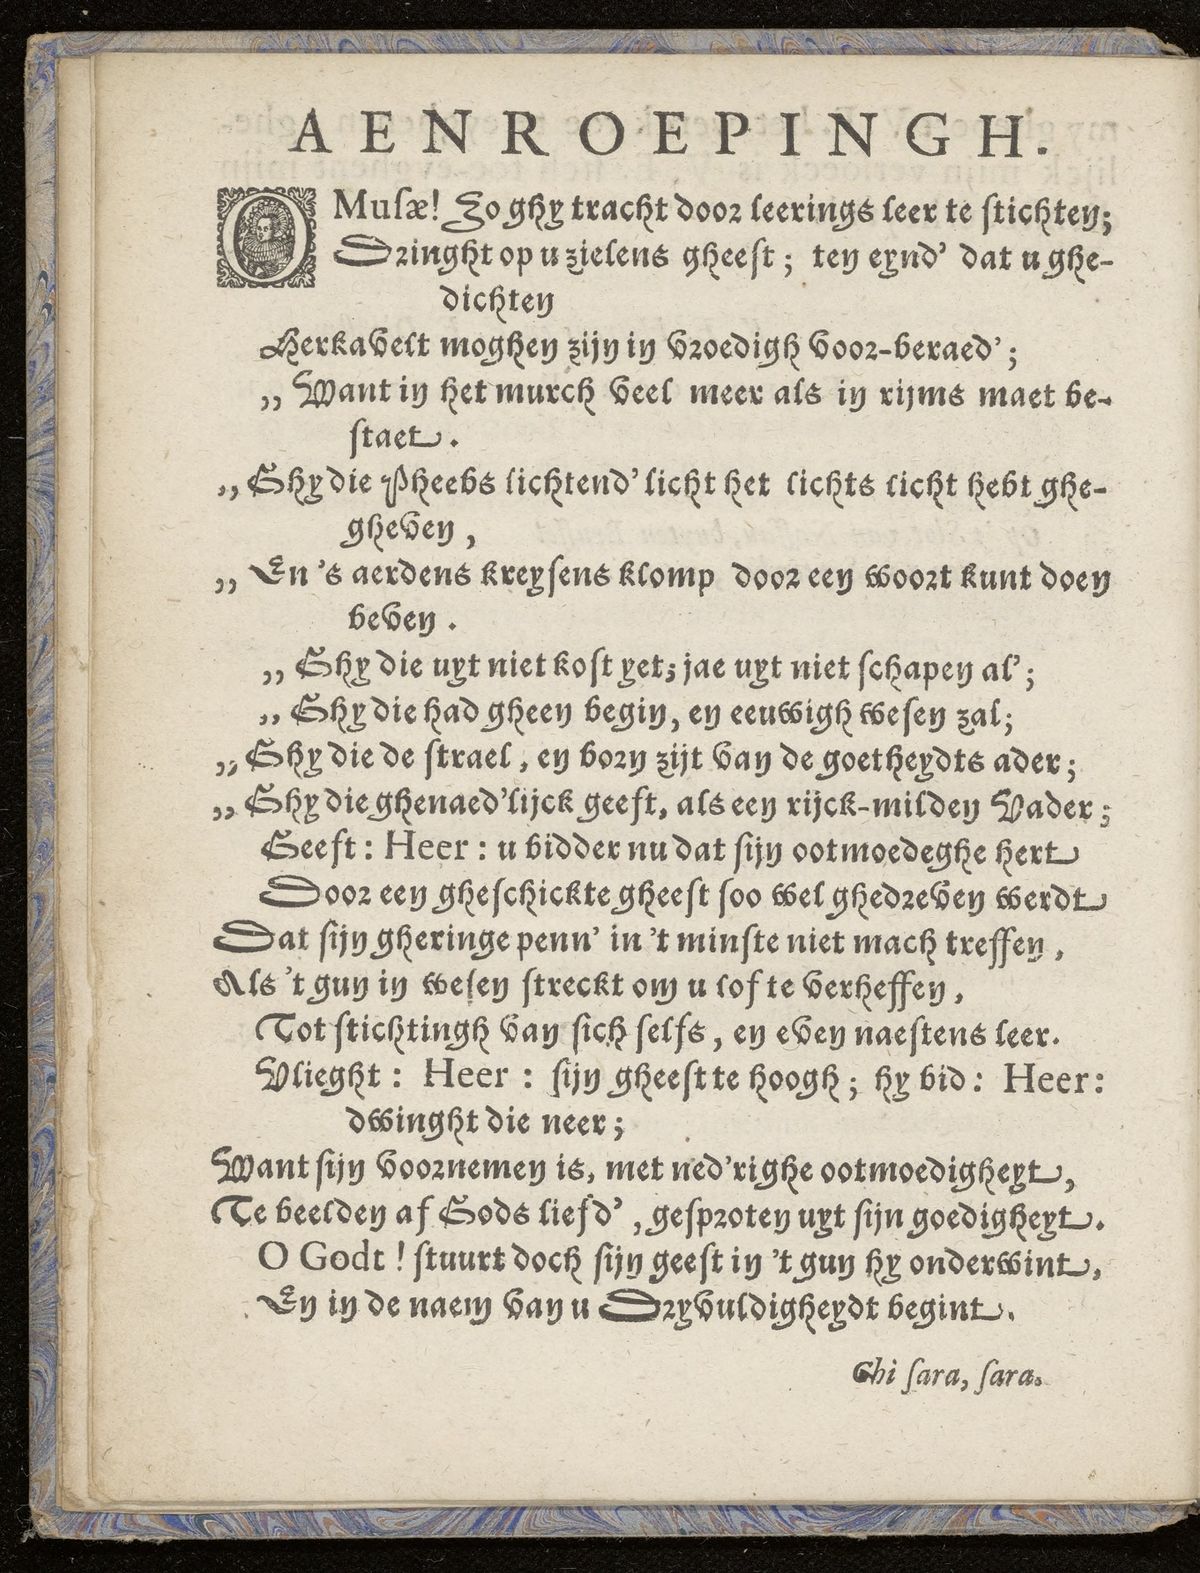 AENROEPINGH.
O Musæ! Zo ghy tracht door leerings leer te stichten;
Dringht op u zielens gheest; ten eynd' dat u ghe-
dichten
Herkavelt moghen zijn in vroedigh voor-beraed';
„ Want in het murch veel meer als in rijms maet be-
staet.
„ Ghy die Pheebs lichtend' licht het lichts licht hebt ghe-
gheven,
„ En 's aerdens kreysens klomp door een woort kunt doen
beven.
„ Ghy die uyt niet kost yet; jae uyt niet schapen al';
„ Ghy die had gheen begin, en eeuwigh wesen zal;
„ Ghy die de strael, en born zijt van de goetheydts ader;
„ Ghy die ghenaed'lijck geeft, als een rijck-milden Vader;
Geeft: Heer: u bidder nu dat sijn ootmoedeghe hert
Door een gheschickte gheest soo wel ghedreven werdt
Dat sijn gheringe penn' in 't minste niet mach treffen,
Als 't gun in wesen streckt om u lof te verheffen,
Tot stichtingh van sich selfs, en even naestens leer.
Vlieght: Heer: sijn gheest te hoogh; hy bid: Heer:
dwinght die neer;
Want sijn voornemen is, met ned'righe ootmoedigheyt,
Te beelden af Gods liefd', gesproten uyt sijn goedigheyt.
O Godt! stuurt doch sijn geest in 't gun hy onderwint,
En in de naem van u Dryvuldigheydt begint.
Chi sara, sara.